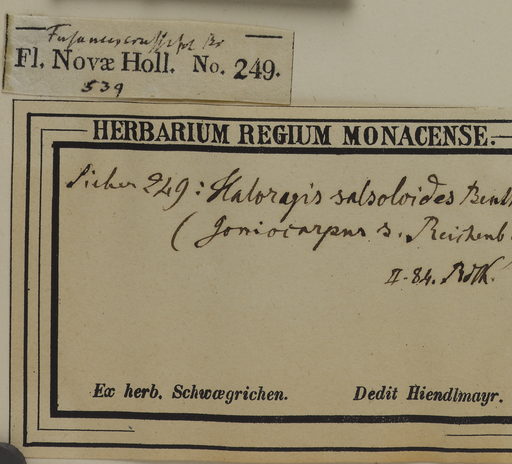 Fusanus crassifol Br
Fl. Novæ Holl. No. 249.
539
HERBARIUM REGIUM MONACENSE.
Sieber 249: Haloragis salsoloides Benth
(Goniocarpus s. Reichenb.
II. 84. Rdlk.
Ex herb. Schwægrichen. Dedit Hiendlmayr.